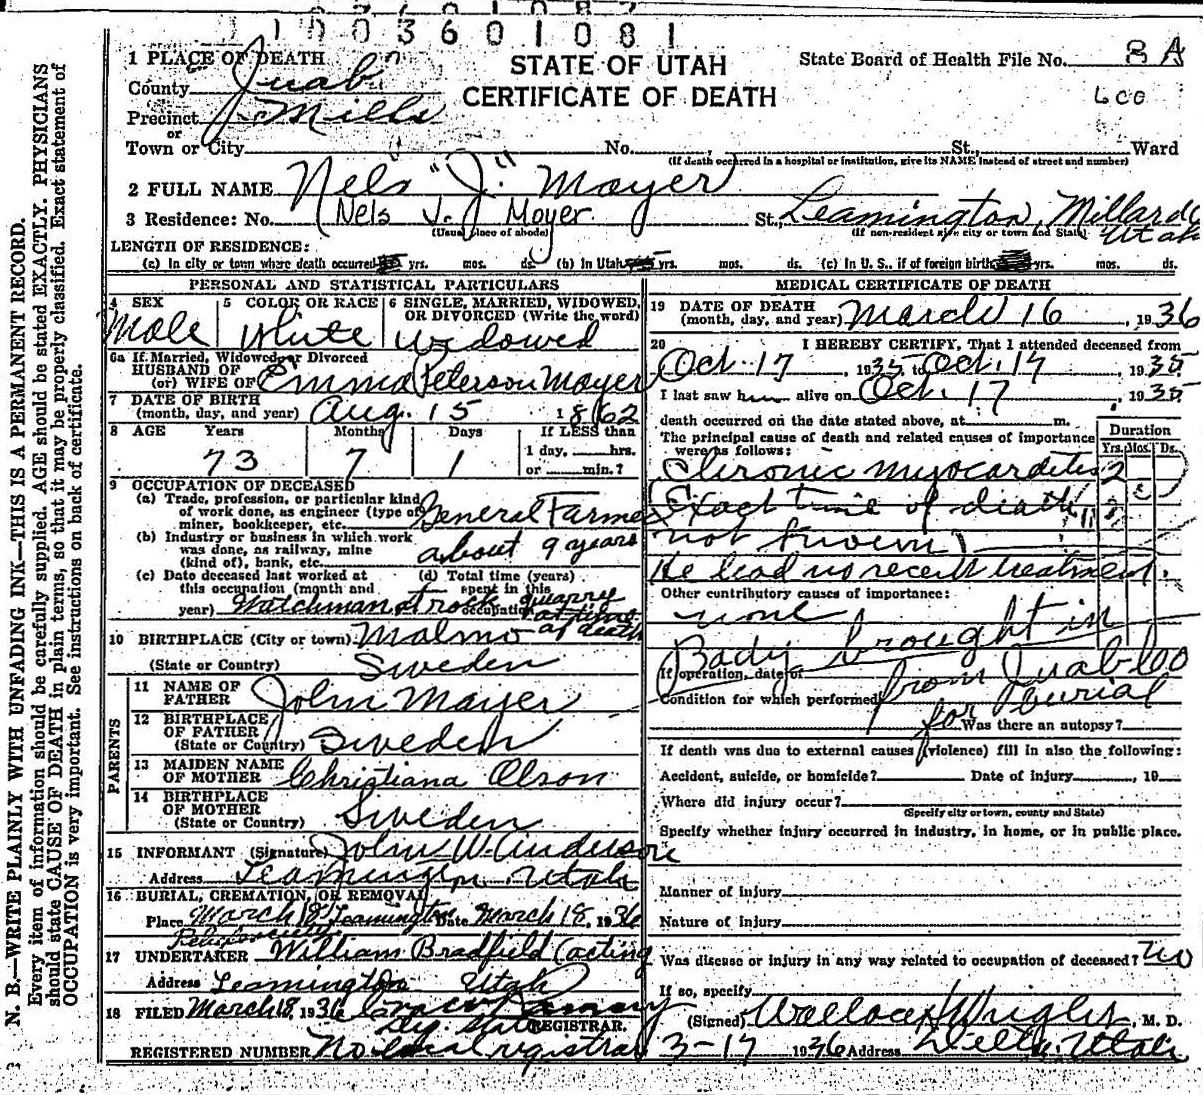 1003601081
STATE OF UTAH
CERTIFICATE OF DEATH
State Board of Health File No. 8 A
600
1 PLACE OF DEATH
County Juab
Precinct Mills
or
Town or City No. , St., Ward
(If death occurred in a hospital or institution, give its NAME instead of street and number)
2 FULL NAME Nels "J." Mayer
3 Residence: No. Nels J. Moyer St., Leamington, Millard Utah
(Usual place of abode) (If non-resident give city or town and State)
LENGTH OF RESIDENCE:
(a) In city or town where death occurred yrs. mos. ds. (b) In Utah yrs. mos. ds. (c) In U. S., if of foreign birth yrs. mos. ds.
PERSONAL AND STATISTICAL PARTICULARS
4 SEX 5 COLOR OR RACE 6 SINGLE, MARRIED, WIDOWED, OR DIVORCED (Write the word)
Male White Widowed
6a If Married, Widowed or Divorced
HUSBAND OF
(or) WIFE OF Emma Peterson Mayer
7 DATE OF BIRTH
(month, day, and year) Aug. 15 1862
8 AGE Years Months Days If LESS than
73 7 1 1 day, hrs.
or min.?
9 OCCUPATION OF DECEASED
(a) Trade, profession, or particular kind
of work done, as engineer (type of
miner, bookkeeper, etc. General Farmer
(b) Industry or business in which work
was done, as railway, mine
(kind of), bank, etc. about 9 years
(c) Date deceased last worked at (d) Total time (years)
this occupation (month and spent in this
year) occupation
Watchman at rock quarry
at time
of death
10 BIRTHPLACE (City or town) Malmo
(State or Country) Sweden
PARENTS
11 NAME OF
FATHER John Mayer
12 BIRTHPLACE
OF FATHER
(State or Country) Sweden
13 MAIDEN NAME
OF MOTHER Christiana Olson
14 BIRTHPLACE
OF MOTHER
(State or Country) Sweden
15 INFORMANT (Signature) John W. Anderson
Address Leamington Utah
16 BURIAL, CREMATION, OR REMOVAL
Place March 18 Leamington Date March 18, 1936
17 UNDERTAKER William Bradfield (acting
Address Leamington Utah
18 FILED March 18, 1936
Dep. State REGISTRAR.
REGISTERED NUMBER No local registrar
MEDICAL CERTIFICATE OF DEATH
19 DATE OF DEATH
(month, day, and year) March 16, 1936
20 I HEREBY CERTIFY, That I attended deceased from
Oct. 17, 1935 to Oct. 17, 1935
I last saw him alive on Oct. 17, 1935
death occurred on the date stated above, at m.
The principal cause of death and related causes of importance
were as follows:
Duration
Yrs. Mos. Ds.
Chronic myocarditis 2
(Exact time of death
not known)
He had no recent treatment.
Other contributory causes of importance:
none
Body brought in
If operation, date of from Juab Co
Condition for which performed for burial
Was there an autopsy?
If death was due to external causes (violence) fill in also the following:
Accident, suicide, or homicide? Date of injury , 19
Where did injury occur?
(Specify city or town, county and State)
Specify whether injury occurred in industry, in home, or in public place.
Manner of injury
Nature of injury
Was disease or injury in any way related to occupation of deceased? No
If so, specify
(Signed) Wallace Wright, M. D.
3-17 1936 Address Delta, Utah
N. B.—WRITE PLAINLY WITH UNFADING INK—THIS IS A PERMANENT RECORD.
Every item of information should be carefully supplied. AGE should be stated EXACTLY. PHYSICIANS
should state CAUSE OF DEATH in plain terms, so that it may be properly classified. Exact statement of
OCCUPATION is very important. See instructions on back of certificate.